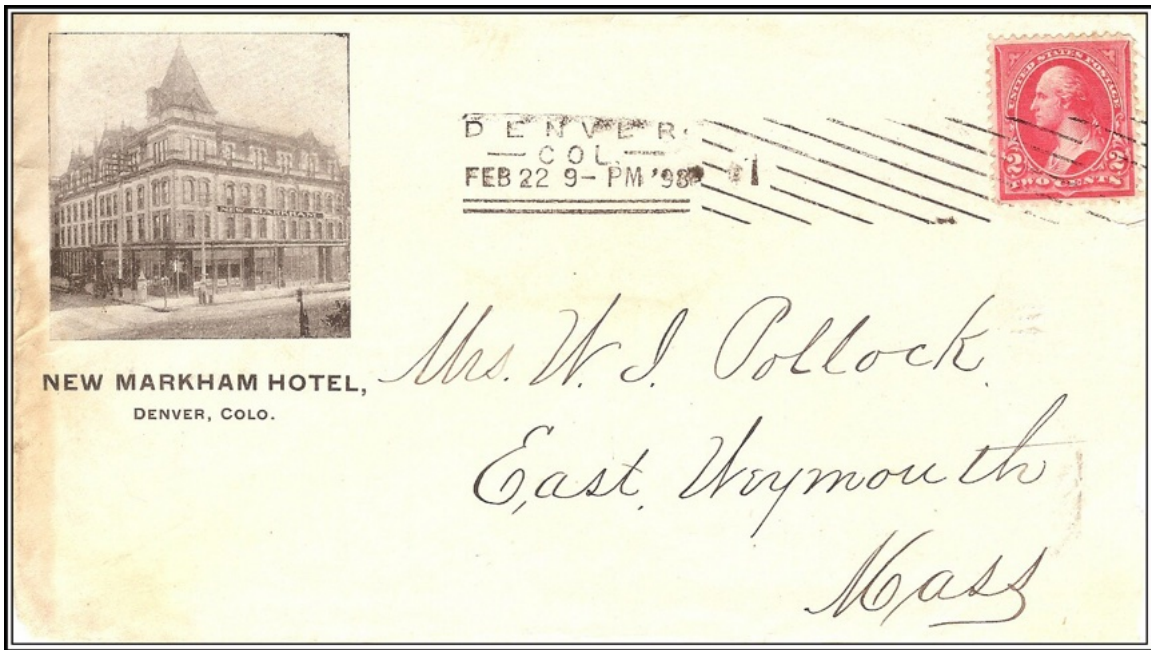 NEW MARKHAM
NEW MARKHAM HOTEL,
DENVER, COLO.
DENVER.
— COL. —
FEB 22 9- PM '98
1
UNITED STATES POSTAGE
2 2
TWO CENTS
Mrs. W. I. Pollock.
East Weymouth
Mass